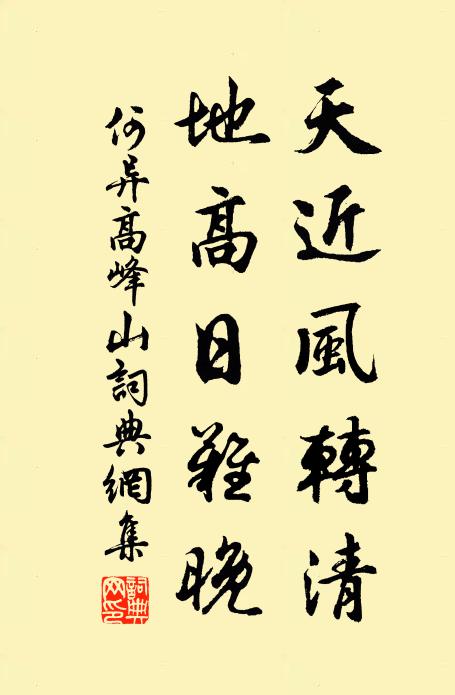 天近風轉清
地高日難晚
何异高峰山詞典網集
詞典网印